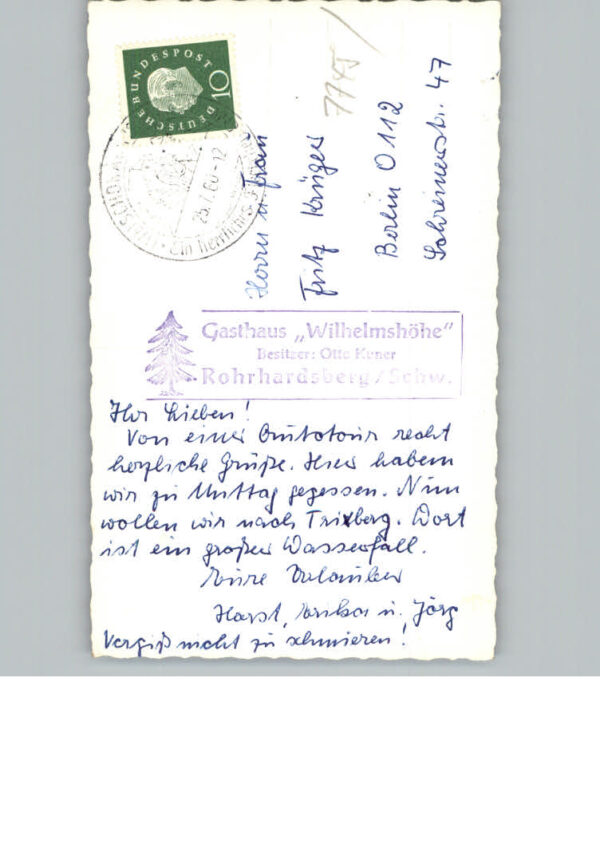 DEUTSCHE BUNDESPOST
10
25.7.60-12
Herrn u. Frau
Fritz Krüger
Berlin O 112
Schreinerstr. 47
7745
Gasthaus „Wilhelmshöhe"
Besitzer: Otto
Rohrhardsberg/Schw.
Ihr Lieben!
Von einer Autotour recht
herzliche Grüße. Hier haben
wir zu Mittag gegessen. Nun
wollen wir nach Triberg. Dort
ist ein großer Wasserfall.
Eure Urlauber
Horst, Erika u. Jörg
Vergiß nicht zu schmieren!